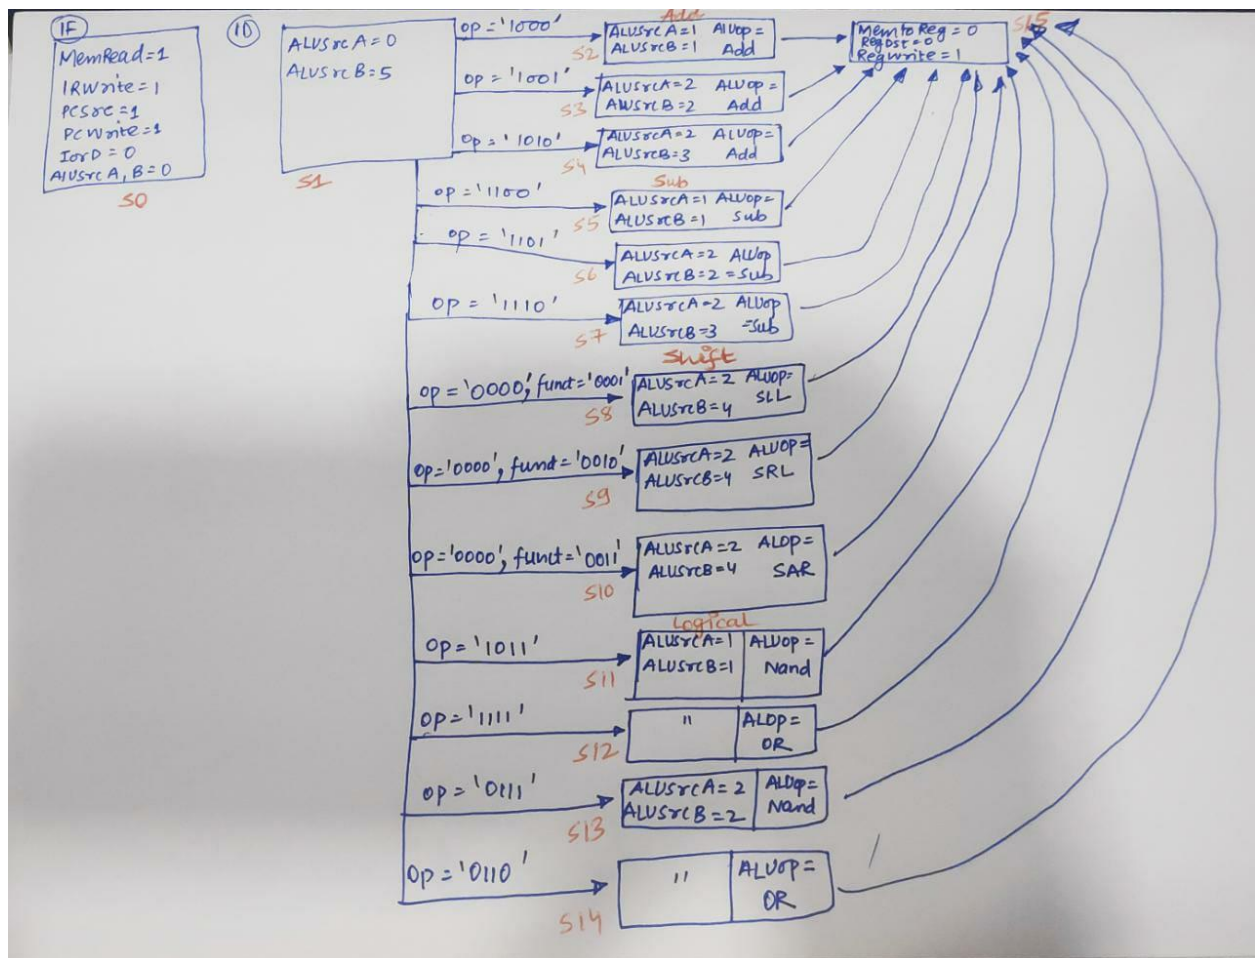 IF
MemRead=1
IRWrite=1
PCSrc=1
PCWrite=1
IorD=0
AlUSrcA,B=0
S0
ID
ALUSrcA=0
ALUSrcB=5
S1
Add
op='1000'
S2
ALUSrcA=1 AlUop=
ALUSrcB=1 Add
op='1001'
S3
ALUSrcA=2 ALUop=
ALUSrcB=2 Add
op='1010'
S4
ALUSrcA=2 ALUop=
ALUSrcB=3 Add
Sub
op='1100'
S5
ALUSrcA=1 ALUop=
ALUSrcB=1 Sub
op='1101'
S6
ALUSrcA=2 ALUop
ALUSrcB=2 =Sub
op='1110'
S7
ALUSrcA=2 ALUop
ALUSrcB=3 =Sub
Shift
op='0000', funct='0001'
S8
ALUSrcA=2 ALUop=
ALUSrcB=4 SLL
op='0000', funct='0010'
S9
ALUSrcA=2 ALUOP=
ALUSrcB=4 SRL
op='0000', funct='0011'
S10
ALUSrcA=2 ALOP=
ALUSrcB=4 SAR
Logical
op='1011'
S11
ALUSrcA=1 ALUop=
ALUSrcB=1 Nand
op='1111'
S12
" ALOP=
OR
op='0111'
S13
ALUSrcA=2 ALUop=
ALUSrcB=2 Nand
op='0110'
S14
" ALUop=
OR
S15
MemtoReg=0
RegDst=0
RegWrite=1